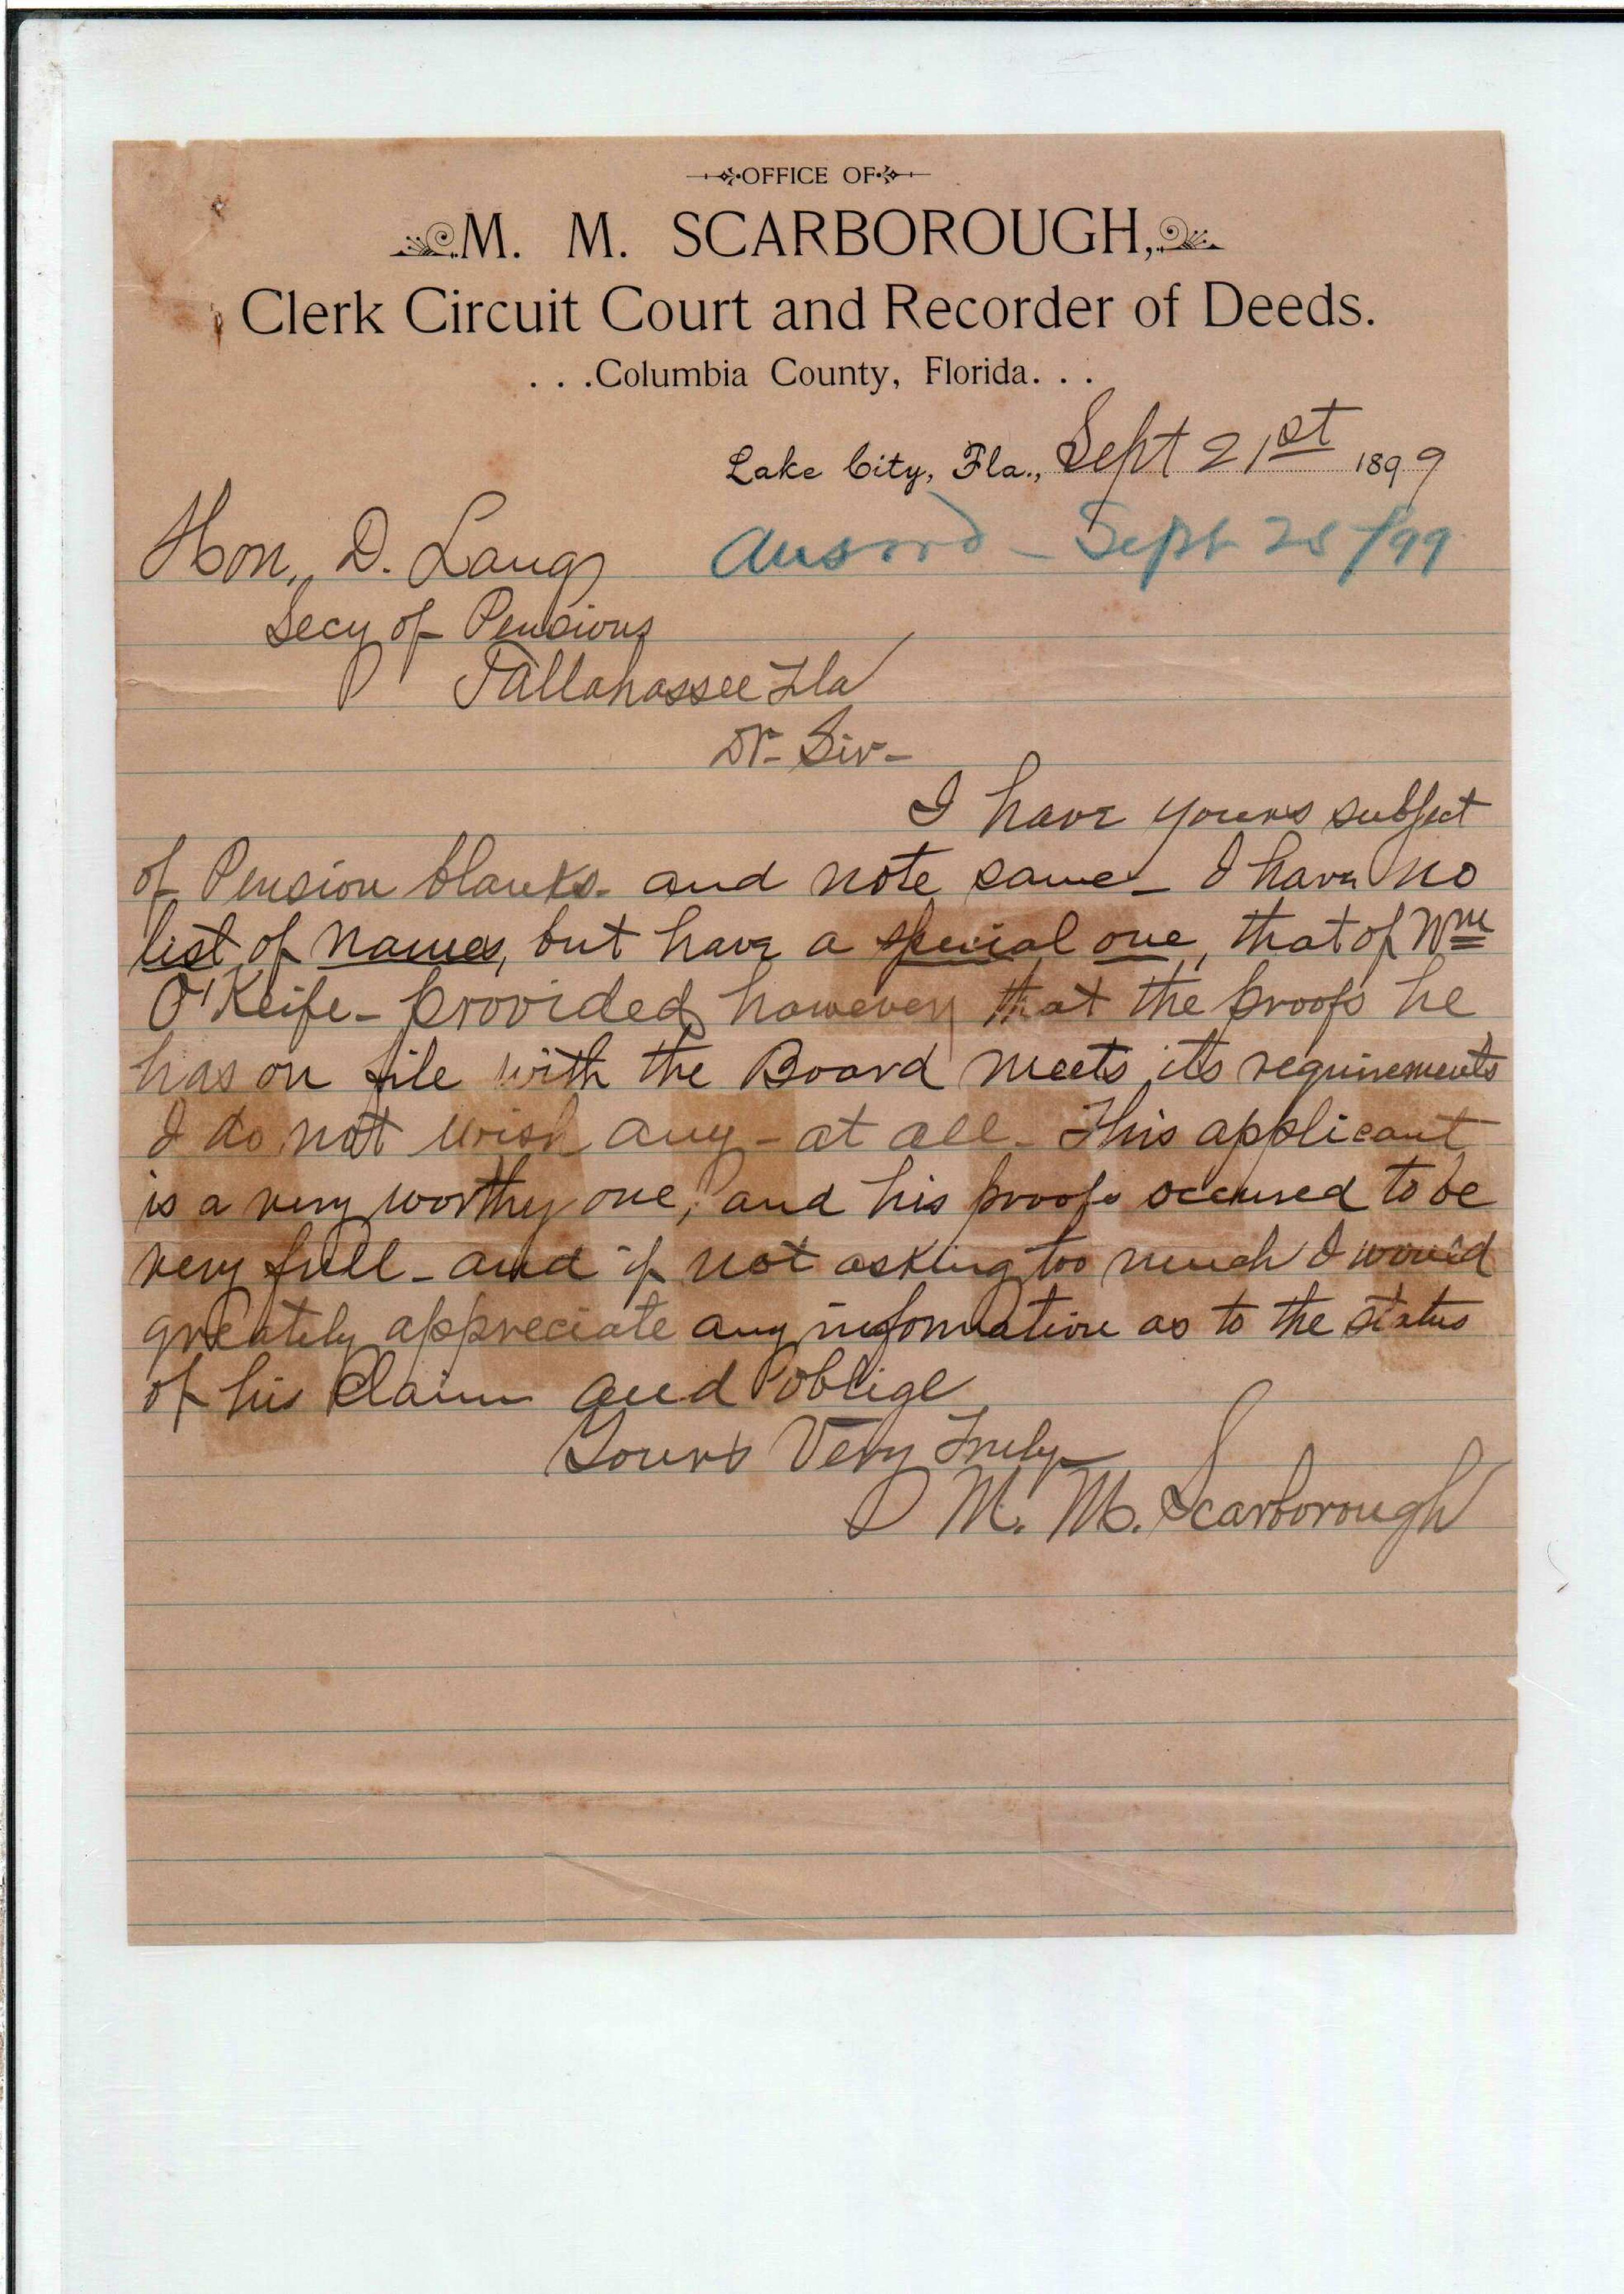 OFFICE OF
M. M. SCARBOROUGH,
Clerk Circuit Court and Recorder of Deeds.
. . .Columbia County, Florida. . .
Lake City, Fla., Sept 21st 1899
Hon. D. Lang
Answrd - Sept 25/99
Secy of Pensions
Tallahassee Fla
Dr- Sir-
I have yours subject
of Pension blanks- and note same- I have no
list of names, but have a special one, that of Wm
O'Keife- provided, however, that the proofs he
has on file with the Board meets its requirements
I do not wish any - at all- This applicant
is a very worthy one, and his proofs seemed to be
very full- and if not asking too much I would
greately appreciate any information as to the status
of his claim and oblige
Yours Very Truly
M. M. Scarborough